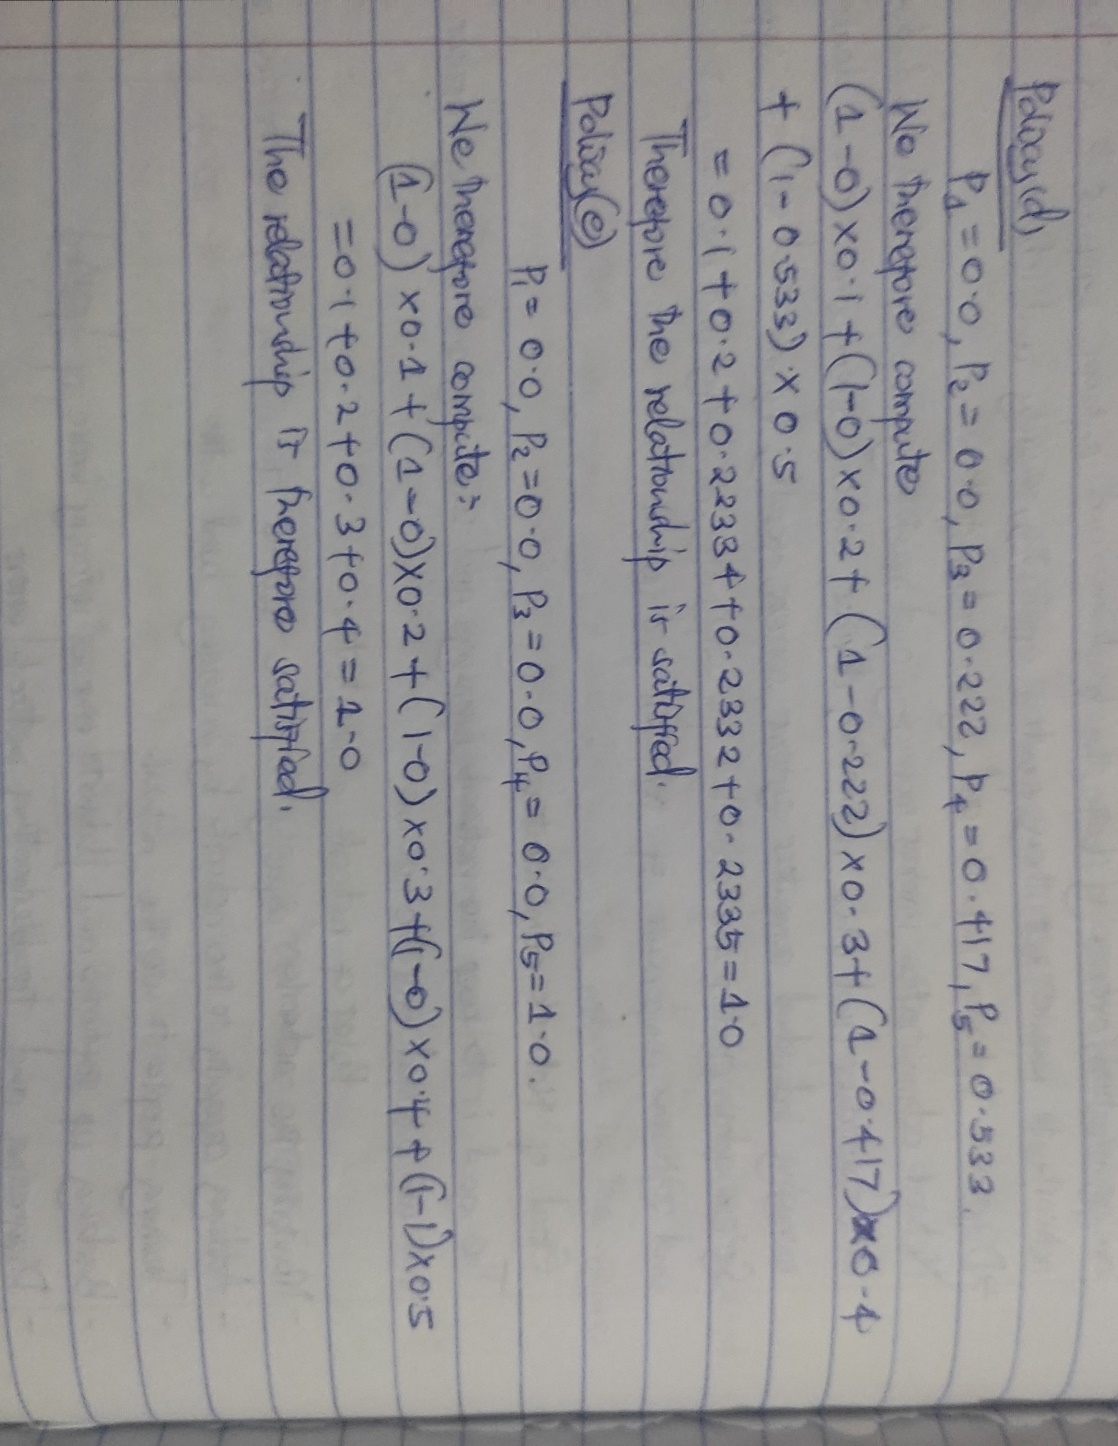 Policy(d)
P1 = 0.0, P2 = 0.0, P3 = 0.222, P4 = 0.417, P5 = 0.533.
We therefore compute
(1-0)×0.1+(1-0)×0.2+(1-0.222)×0.3+(1-0.417)×0.4
+(1-0.533)×0.5
=0.1+0.2+0.2334+0.2332+0.2335=1.0
Therefore the relationship is satisfied.
Policy(e)
P1 = 0.0, P2 = 0.0, P3 = 0.0, P4 = 0.0, P5 = 1.0.
We therefore compute:
(1-0)×0.1+(1-0)×0.2+(1-0)×0.3+(1-0)×0.4+(1-1)×0.5
=0.1+0.2+0.3+0.4=1.0
The relationship is therefore satisfied.